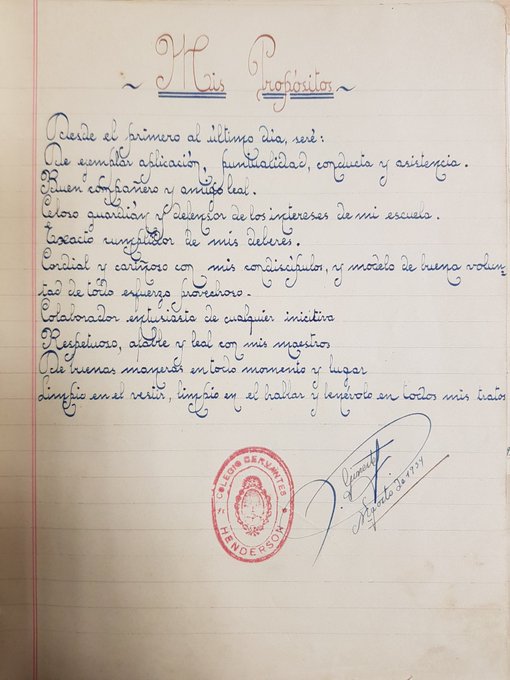 ~ Mis Propósitos ~
Desde el primero al último día, seré:
De ejemplar aplicación, puntualidad, conducta y asistencia.
Buen compañero y amigo leal.
Celoso guardián y defensor de los intereses de mi escuela.
Exacto cumplidor de mis deberes.
Cordial y cariñoso con mis condiscípulos, y modelo de buena volun-
tad de todo esfuerzo provechoso.
Colaborador entusiasta de cualquier inicitiva
Respetuoso, afable y leal con mis maestros
De buenas maneras en todo momento y lugar
Limpio en el vestir, limpio en el hablar y benévolo en todos mis tratos
COLEGIO CERVANTES
HENDERSON
Agosto de 1934